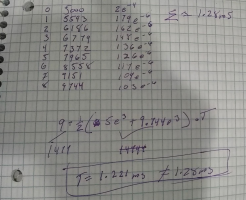 0 5000 2e⁻⁴
1 5593 179e⁻⁶
2 6186 162e⁻⁶
3 6779 148e⁻⁶
4 7372 136e⁻⁶
5 7965 126e⁻⁶
6 8558 117e⁻⁶
7 9151 109e⁻⁶
8 9744 103e⁻⁶
Σ ≈ 1.28ms
9 = ½(5e³ + 9.744e³) · T
T = 1.221ms ≠ 1.28ms